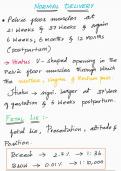 NORMAL DELIVERY
• Pelvic floor muscles at
21 weeks & 37 weeks & again
6 weeks, 6 months & 12 months
(postpartum)
→ Hiatus V-shaped opening in the
Pelvic floor muscles through which
the urethra, vagina & Rectum pass.
Hiatus → signi. larger at 37 weeks
of gestation & 6 weeks postpartum.
Fetal Lie :-
fetal Lie, Presentation, attitude &
Position.
Breech → 2.7% → 1:36
Brow → 0.01% → 1:10,000